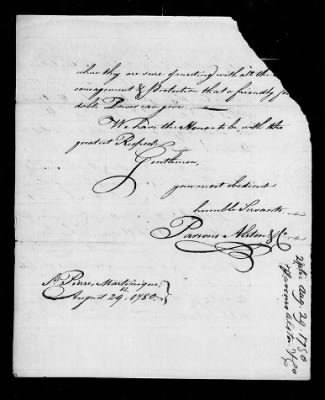 where they are sure of meeting with all the
couragement & Protection that a friendly
debt Power can give. —
We have the Honor to be with the
greatest Respect
Gentlemen,
your most obedient
humble Servants
Parsons Alston & Co
St. Pierre, Martinique,
August 29. 1780.
Aug. 29. 1780
Parsons Alston & Co